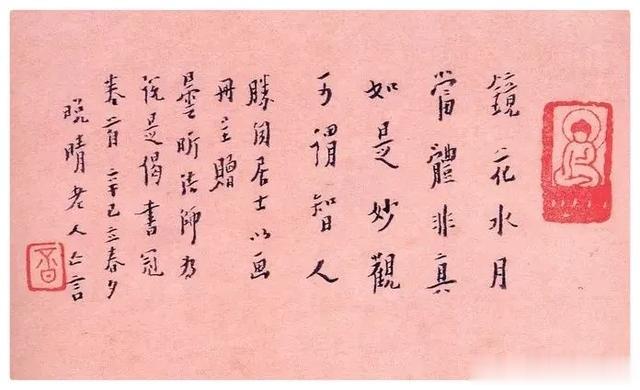 鏡花水月
當體非真
如是妙觀
可謂智人
勝闍居士以画
冊主贈
曇昕法師為
說是偈書冠
卷首 辛巳立春夕
晚晴老人亡言